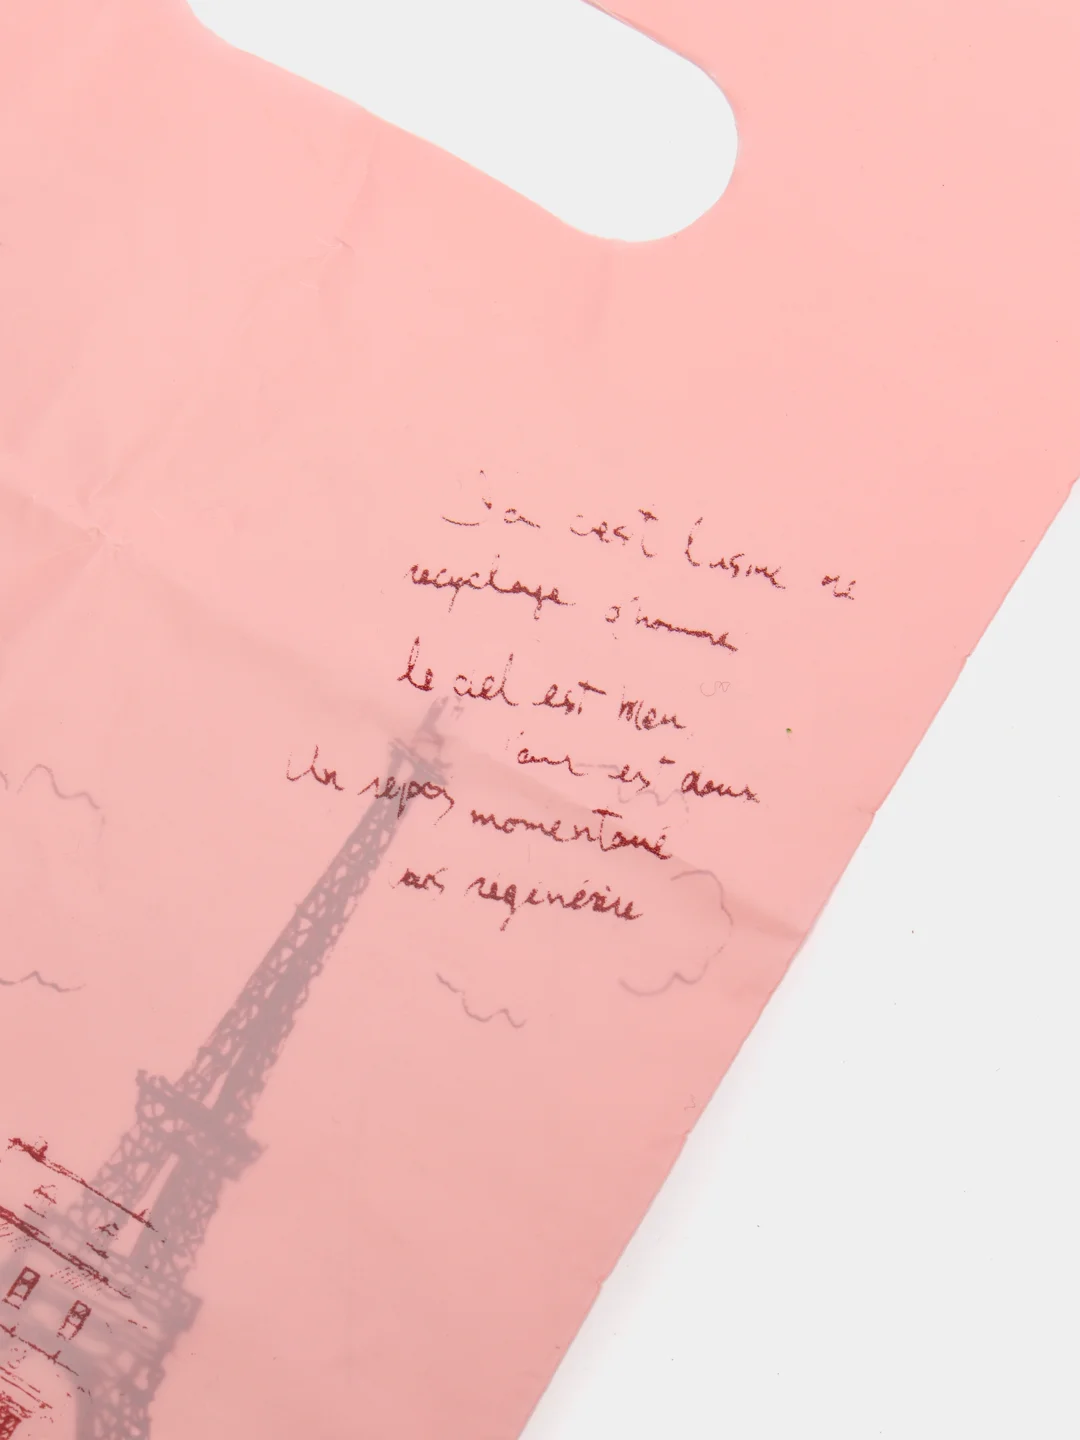 c'est l'usine de
recyclage d'hommes
le ciel est bleu
l'air est doux
Un repos momentané
régénère